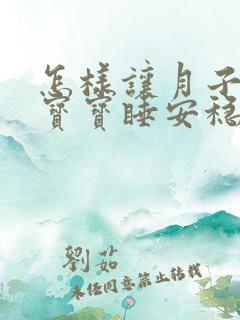 怎樣讓月子
寶寶睡安穩
劉茹
未經同意禁止轉載